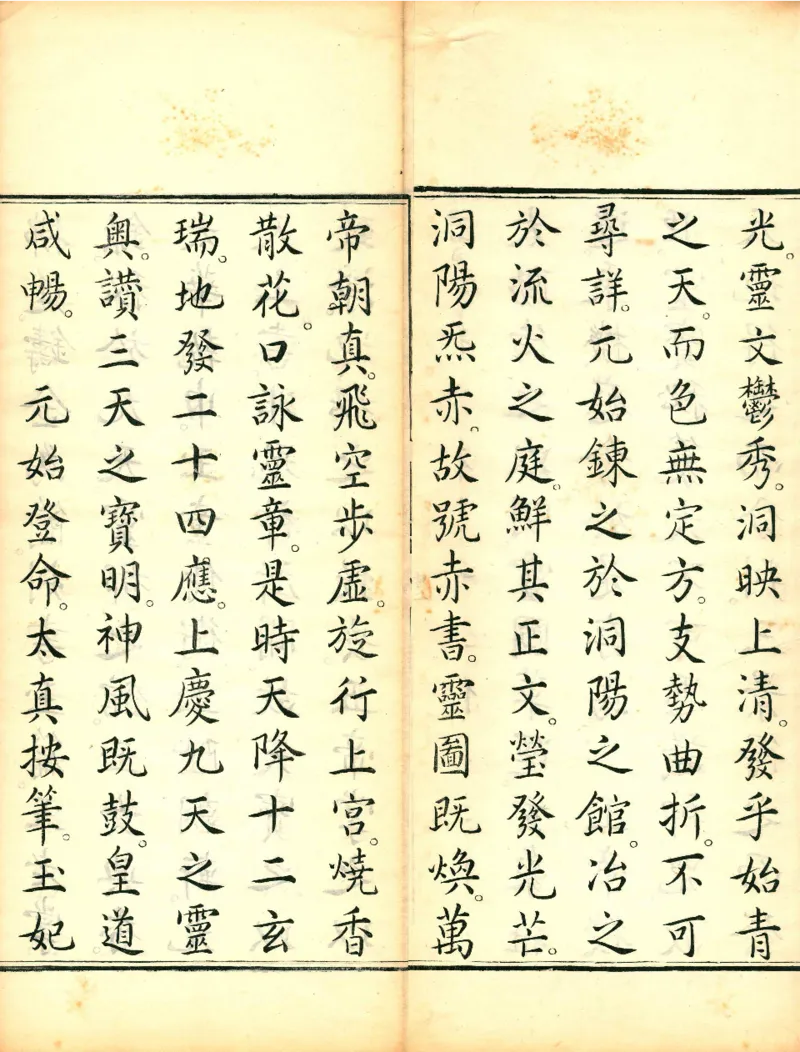 光。靈文鬱秀。洞映上清。發乎始青
之天。而色無定方。支勢曲折。不可
尋詳。元始鍊之於洞陽之館。冶之
於流火之庭。鮮其正文。瑩發光芒。
洞陽炁赤。故號赤書。靈圖既煥。萬
帝朝真。飛空步虛。旋行上宮。燒香
散花。口詠靈章。是時天降十二玄
瑞。地發二十四應。上慶九天之靈
奧。讚三天之寶明。神風既鼓。皇道
咸暢。　元始登命。太真按筆。玉妃